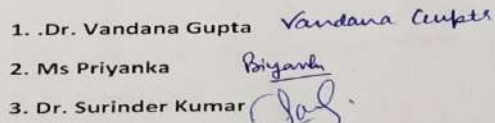 1. .Dr. Vandana Gupta Vandana Gupta
2. Ms Priyanka
3. Dr. Surinder Kumar